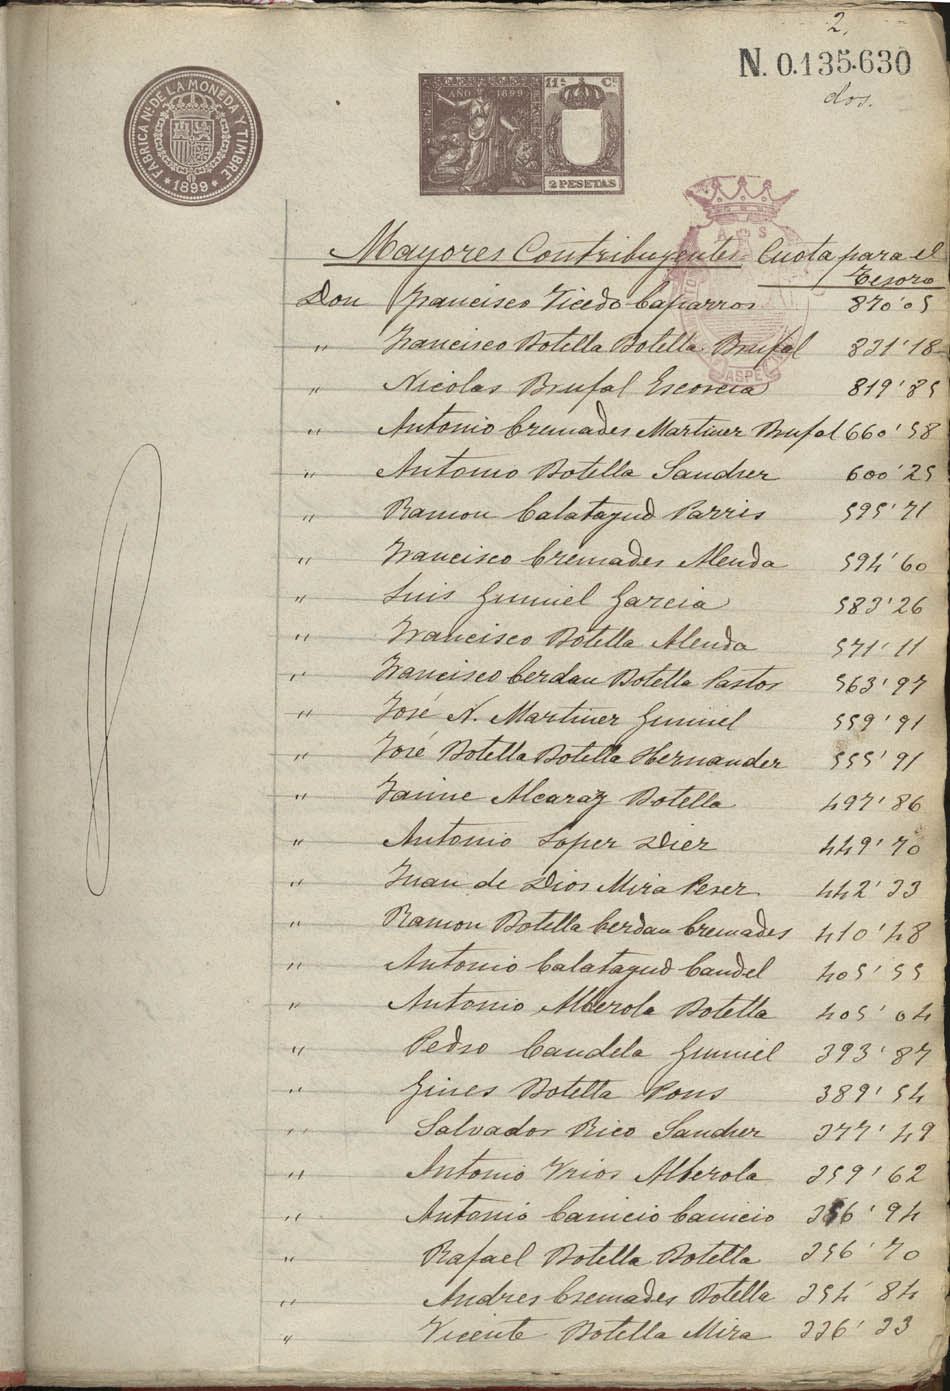 2,
N. 0.135.630
dos.
FABRICA Nal DE LA MONEDA Y TIMBRE
* 1899 *
AÑO 1899
11ª Cª
2 PESETAS
A S
ASPE
Mayores Contribuyentes Cuota para el
Tesoro
Don Francisco Vicedo Caparros 870'05
" Francisco Botella Botella Brufal 821'18
" Nicolas Brufal Escorcia 819'85
" Antonio Cremades Martinez Brufal 660'58
" Antonio Botella Sanchez 600'25
" Ramon Calatayud Parris 595'71
" Francisco Cremades Alenda 594'60
" Luis Gumiel Garcia 583'26
" Francisco Botella Alenda 571'11
" Francisco Cerdan Botella Pastor 563'97
" José N. Martinez Gumiel 559'91
" José Botella Botella Hernandez 555'91
" Jaime Alcaraz Botella 497'86
" Antonio Lopez Diez 449'70
" Juan de Dios Mira Perez 442'33
" Ramon Botella Cerdan Cremades 410'48
" Antonio Calatayud Candel 405'55
" Antonio Alberola Botella 405'04
" Pedro Candela Gumiel 393'87
" Gines Botella Pons 389'54
" Salvador Rico Sanchez 377'49
" Antonio Urios Alberola 359'62
" Antonio Canicio Canicio 356'94
" Rafael Botella Botella 356'70
" Andres Cremades Botella 354'84
" Vicente Botella Mira 336'33